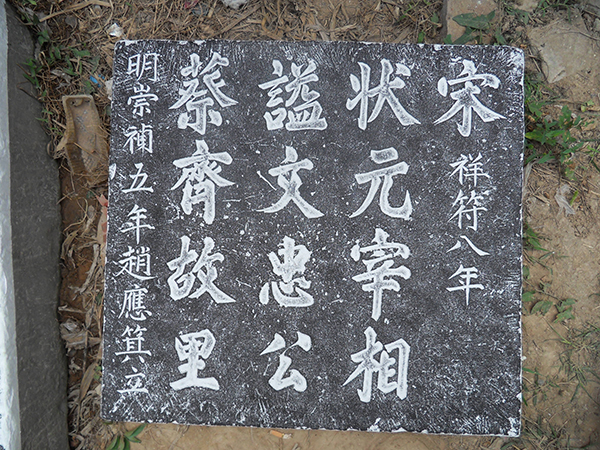 宋祥符八年
状元宰相
謚文忠公
蔡齊故里
明崇禎五年趙應箕立